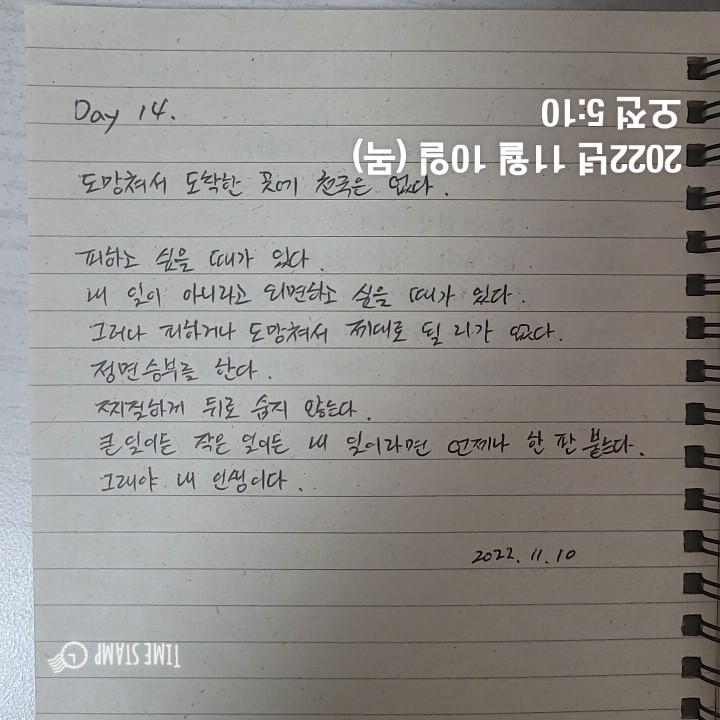 Day 14.
오전 5:10
2022년 11월 10일 (목)
도망쳐서 도착한 곳에 천국은 없다.
피하고 싶을 때가 있다.
내 일이 아니라고 외면하고 싶을 때가 있다.
그러나 피하거나 도망쳐서 제대로 될 리가 없다.
정면승부를 한다.
찌질하게 뒤로 숨지 않는다.
큰일이든 작은 일이든 내 일이라면 언제나 한 판 붙는다.
그래야 내 인생이다.
2022. 11. 10
TIME STAMP